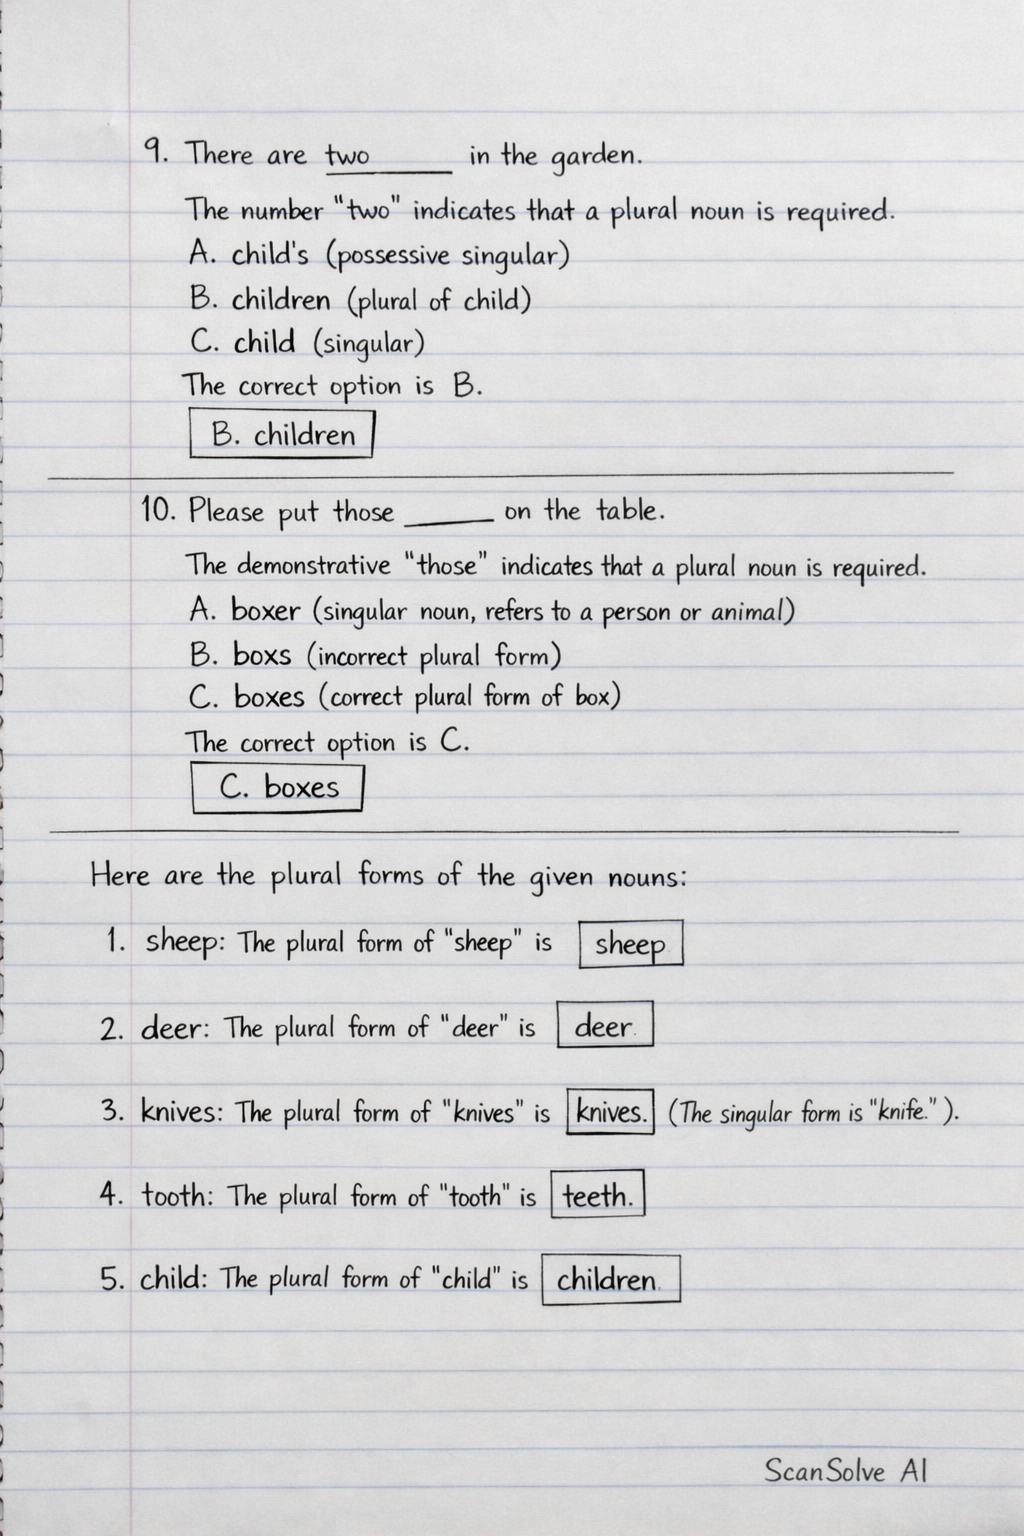 9. There are two ______ in the garden.
The number "two" indicates that a plural noun is required.
A. child's (possessive singular)
B. children (plural of child)
C. child (singular)
The correct option is B.
B. children
10. Please put those ______ on the table.
The demonstrative "those" indicates that a plural noun is required.
A. boxer (singular noun, refers to a person or animal)
B. boxs (incorrect plural form)
C. boxes (correct plural form of box)
The correct option is C.
C. boxes
Here are the plural forms of the given nouns:
1. sheep: The plural form of "sheep" is sheep.
2. deer: The plural form of "deer" is deer.
3. knives: The plural form of "knives" is knives. (The singular form is "knife.").
4. tooth: The plural form of "tooth" is teeth.
5. child: The plural form of "child" is children.
ScanSolve AI